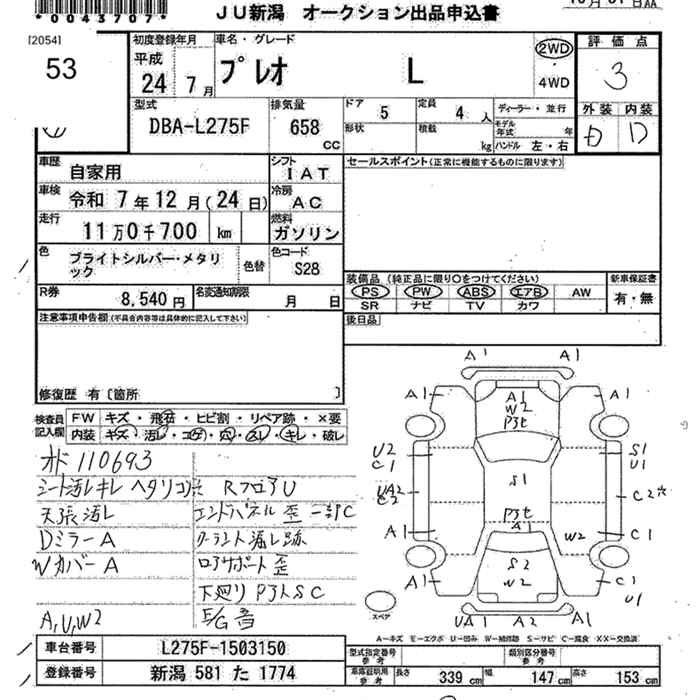 *0043707*
JU新潟 オークション出品申込書
[2054]
53
初度登録年月
平成
24年 7月
車名・グレード
プレオ L
2WD
4WD
評価点
3
外装 内装
D
型式
DBA-L275F
排気量
658 CC
ドア 5
定員 4 人
形状
積載 kg
ディーラー・並行
モデル年式 年
ハンドル 左・右
車歴 自家用
シフト IAT
セールスポイント(正常に機能するものに限ります)
車検 令和 7年 12月 (24日)
冷房 AC
走行 11万0千700 km
燃料 ガソリン
色 ブライトシルバー・メタリック
色替
色コード S28
装備品 (純正品に限り〇をつけてください)
新車保証書
PS PW ABS エアB AW
SR ナビ TV カワ
有・無
R券 8,540円
名変通知期限 月 日
後日品
注意事項申告欄(不具合内容等は具体的に記入して下さい)
修復歴 有〔箇所 〕
検査員記入欄
FW キズ・飛石・ヒビ割・リペア跡・×要
内装 キズ・汚レ・コゲ・穴・スレ・キレ・破レ
オド 110693
シート汚レキレ RフロアU
天張汚レ エンドパネル歪 一部C
DミラーA クーラント漏レ跡
WカバーA ロアサポート歪
下廻り
A,U,W2 E/G音
A1 A1
A1 A1 A1
W2
U2 C1
S1 U1
S1
UA2 C2
C2
A1
A1 W2 C1
S2
W2
A1 C1
U1
スペア
UA1 A1 A1
A―キズ M―エクボ U―凹み W―補修跡 S―サビ C―腐食 XX―交換済
車台番号 L275F-1503150
登録番号 新潟 581 た 1774
型式指定番号 参考
類別区分番号 参考
車庫証明用 参考 長さ 339 cm 幅 147 cm 高さ 153 cm